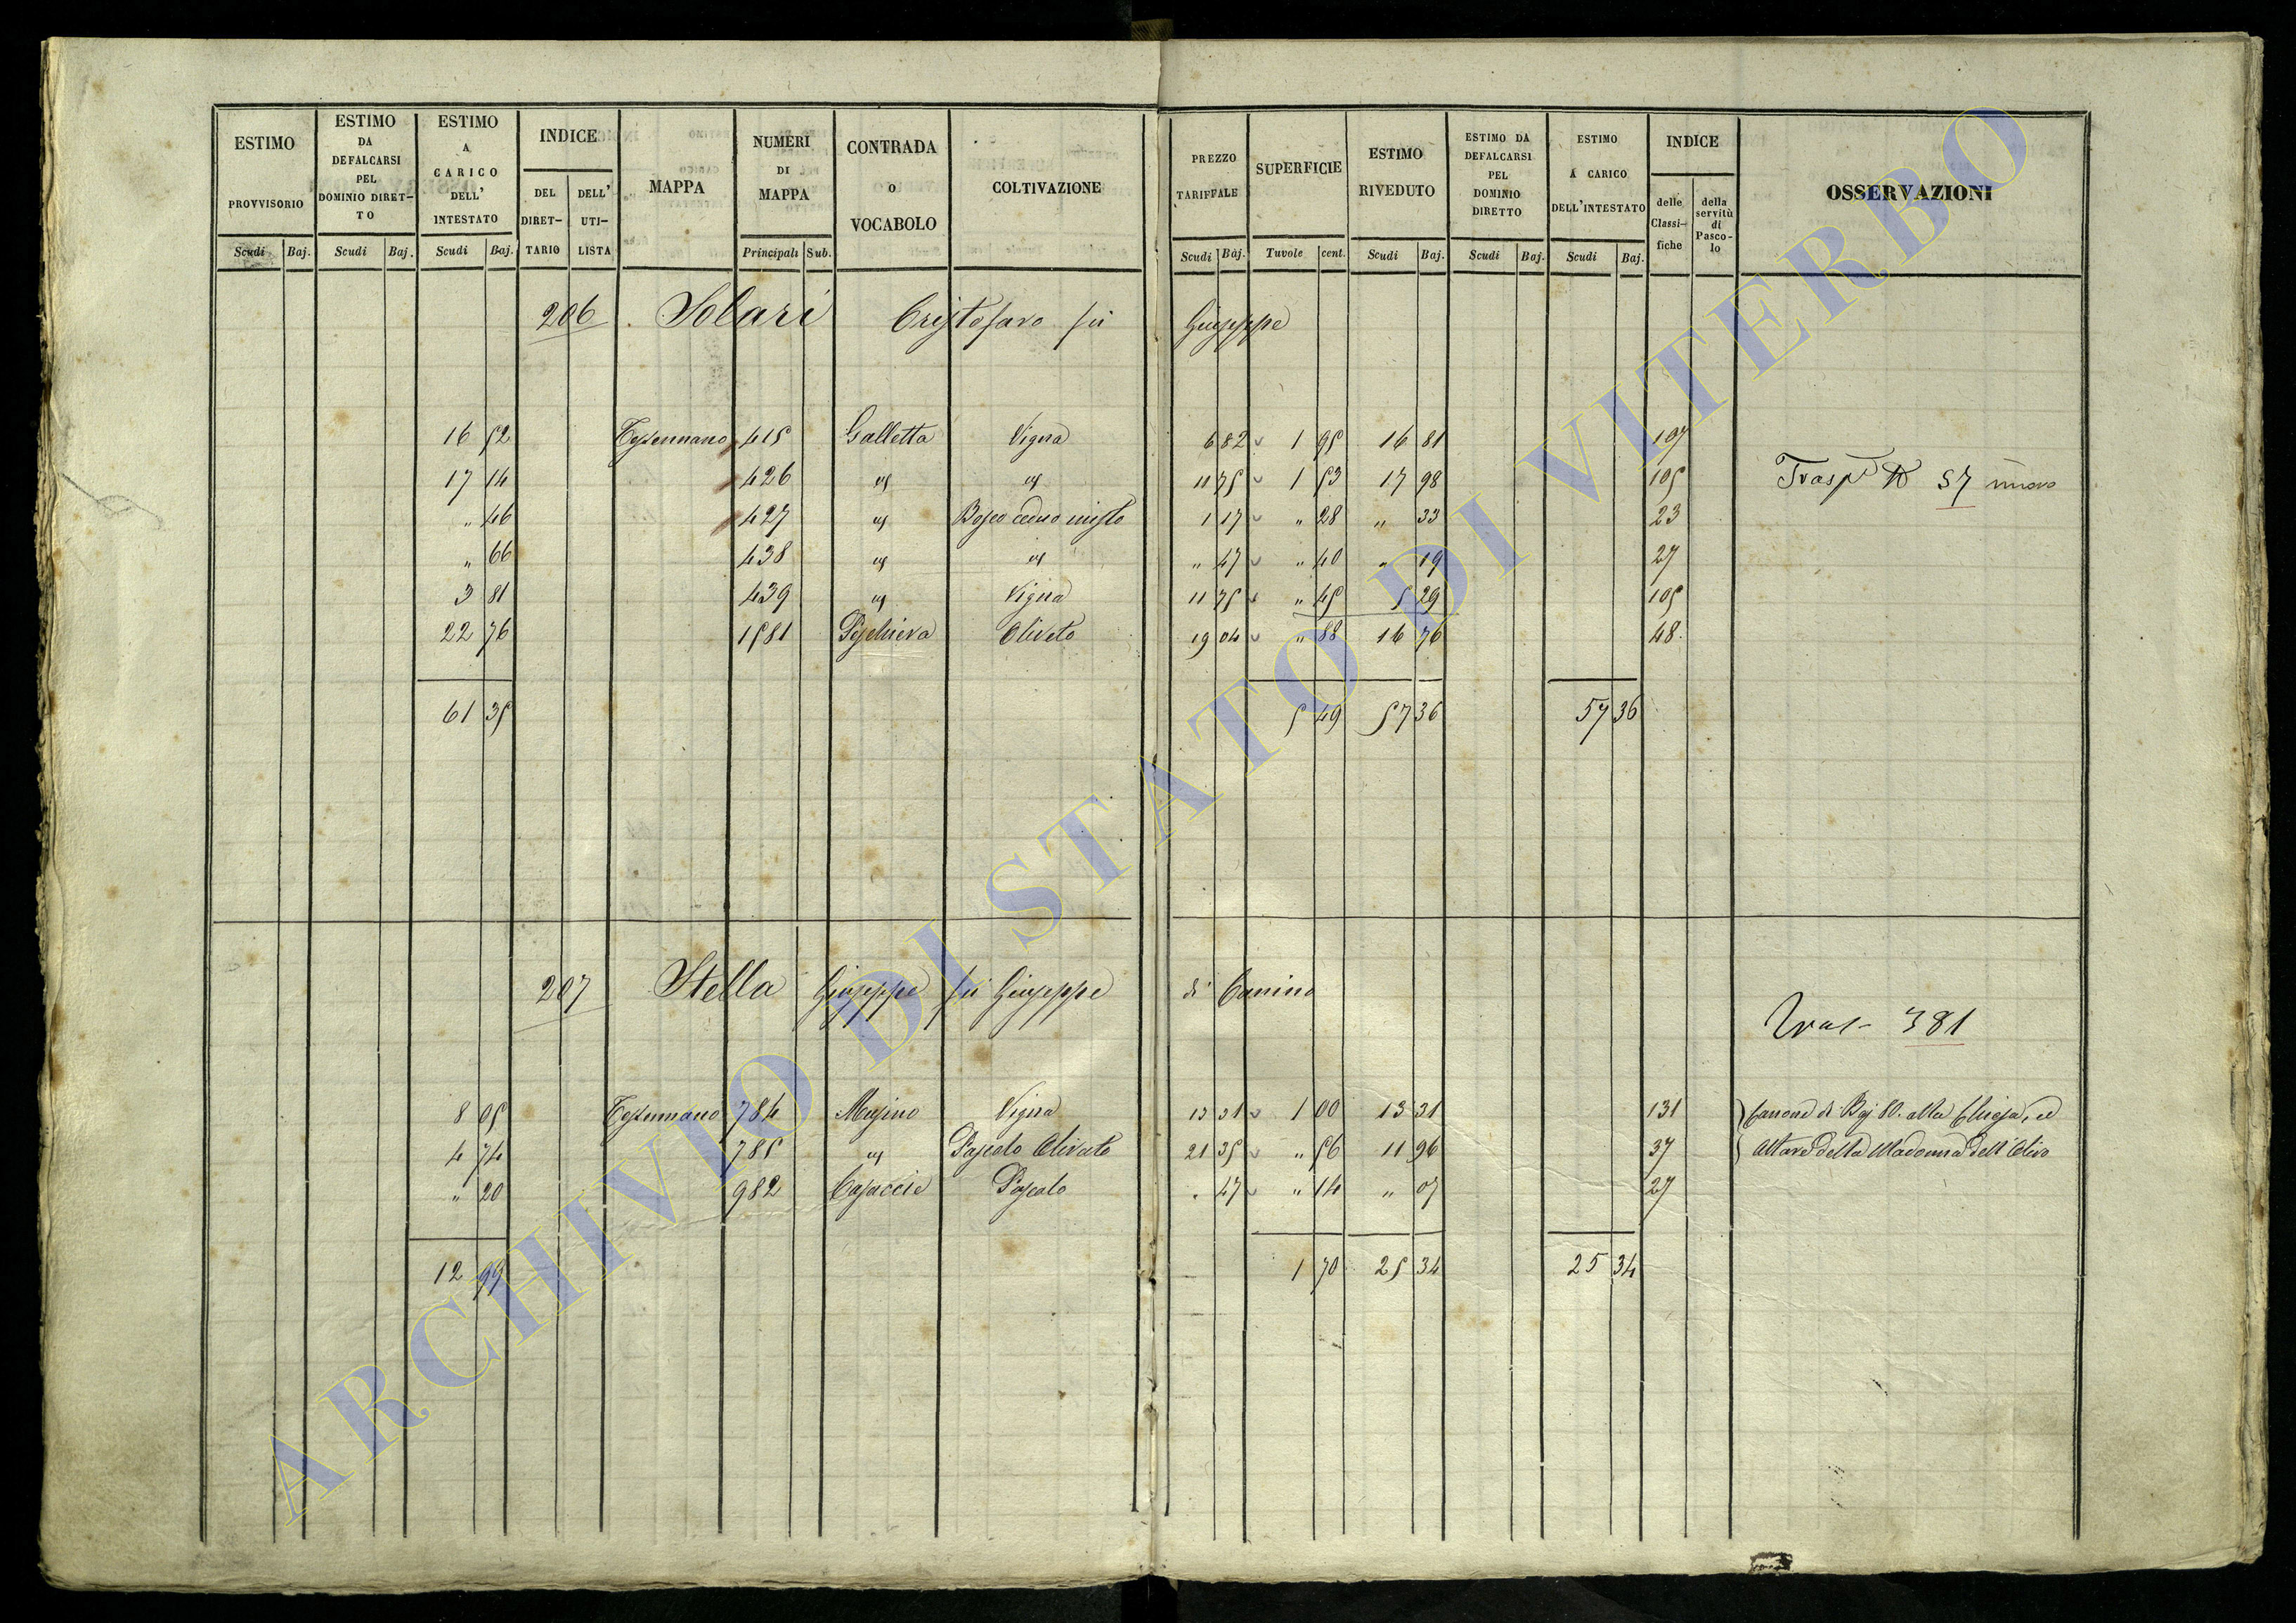 ESTIMO PROVVISORIO Scudi Baj.
ESTIMO DA DEFALCARSI PEL DOMINIO DIRET-TO Scudi Baj.
ESTIMO A CARICO DELL' INTESTATO Scudi Baj.
INDICE DEL DIRET-TARIO DELL' UTI-LISTA
MAPPA
NUMERI DI MAPPA Principali Sub.
CONTRADA O VOCABOLO
COLTIVAZIONE
PREZZO TARIFFALE Scudi Baj.
SUPERFICIE Tavole cent.
ESTIMO RIVEDUTO Scudi Baj.
ESTIMO DA DEFALCARSI PEL DOMINIO DIRETTO Scudi Baj.
ESTIMO A CARICO DELL'INTESTATO Scudi Baj.
INDICE delle Classi-fiche della servitù di Pasco-lo
OSSERVAZIONI
206 Solari Cristofaro fù Giuseppe
16 52 Tessennano 415 Galletta Vigna 6 82 1 95 16 81 107
17 14 426 " " 11 75 1 53 17 98 105 Trasp. 57 nuovo
" 46 427 " Bosco ceduo misto 1 17 " 28 " 33 23
" 66 438 " " " 47 " 40 " 19 27
3 81 439 " Vigna 11 75 " 45 5 29 105
22 76 1581 Peschiera Oliveto 19 04 " 88 16 76 48.
61 35 5 49 57 36 57 36
207 Stella Giuseppe fù Giuseppe di Canino
Tras- 381
8 05 Tessennano 784 Musino Vigna 13 31 1 00 13 31 131 Canone di Baj 80. alla Chiesa, ed
4 74 785 " Pascolo Olivato 21 35 " 56 11 96 37 Altare della Madonna dell'Olivo
" 20 982 Casaccie Pascolo " 47 " 14 " 07 27
12 99 1 70 25 34 25 34
ARCHIVIO DI STATO DI VITERBO